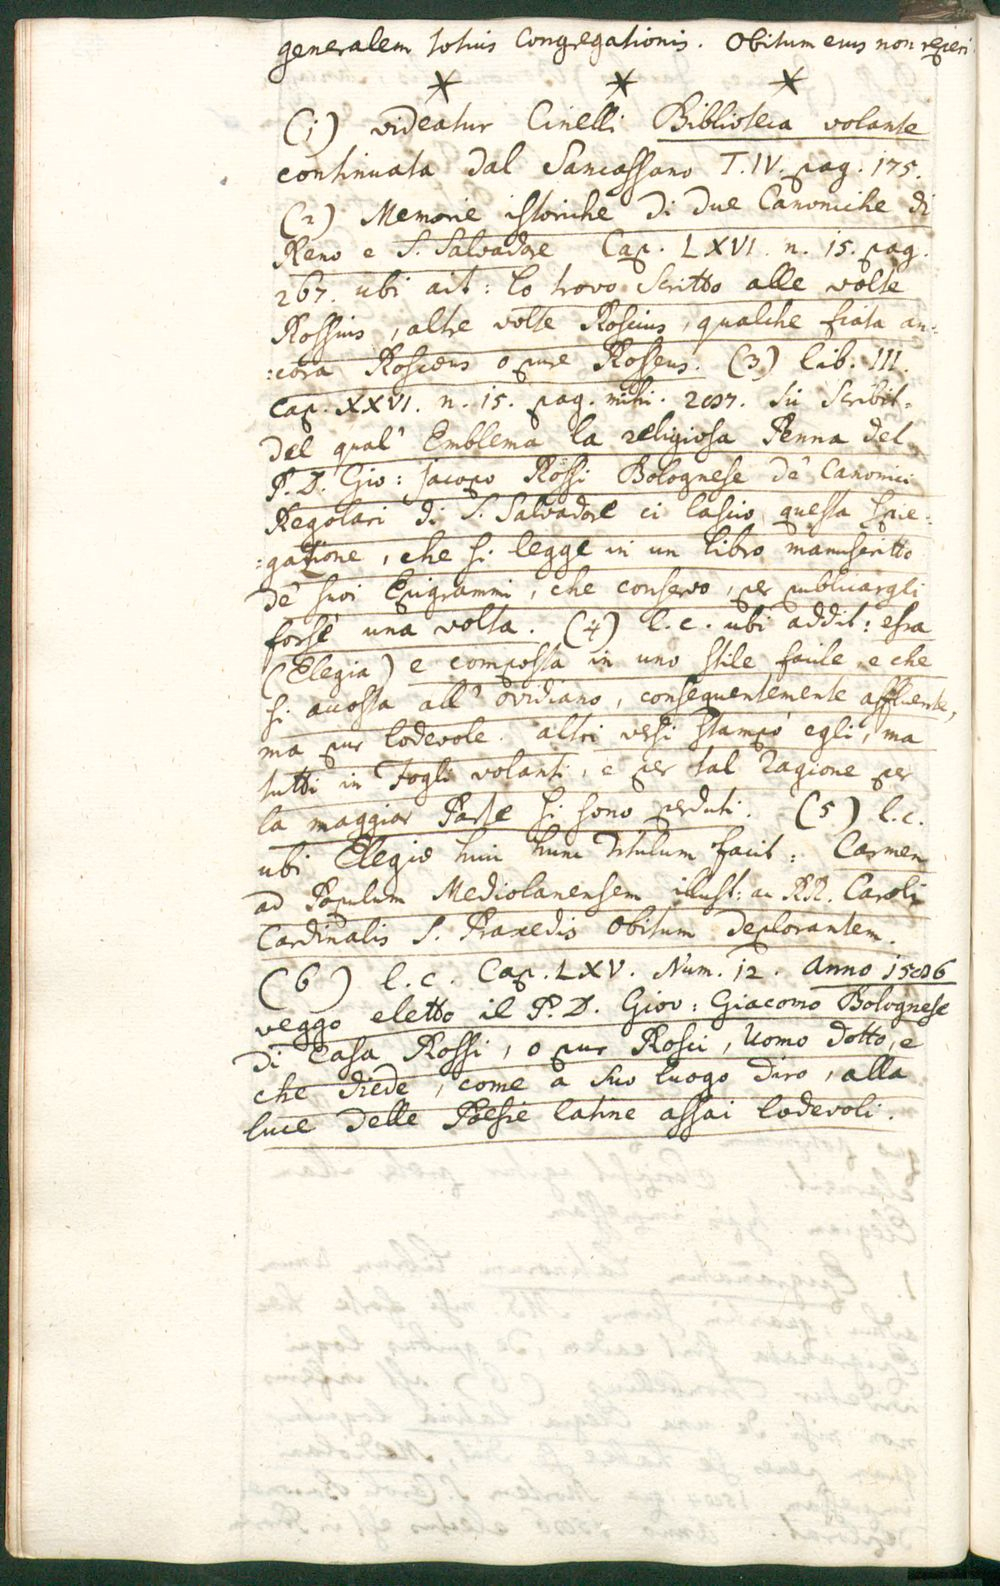 generalem totius Congregationis. Obitum eius non reperi.
* * *
(1) videatur Cinelli Biblioteca volante
continuata dal Sancassano T. IV. pag. 175.
(2) Memorie istoriche di due Canoniche di
Reno e S. Salvadore Cap. LXVI. n. 15. pag.
267. ubi ait: lo trovo scritto alle volte
Rossius, altre volte Roscius, qualche fiata an-
:cora Roscius o pure Rosseus. (3) Lib. III.
Cap. XXVI. n. 15. pag. mihi. 287. sic scribit.
del qual' Emblema la religiosa Penna del
P. D. Gio: Jacopo Rossi Bolognese de' Canonici
Regolari di S. Salvadore ci lasciò questa spie:
:gazione, che si legge in un libro manuscritto
de' suoi Epigrammi, che conservo, per publicargli
forse una volta. (4) l. c. ubi addit: essa
(Elegia) e composta in uno stile facile, e che
si accosta all' Ovidiano, conseguentemente affluente,
ma pur lodevole. altri versi stampò egli, ma
tutti in Fogli volanti, e per tal Ragione per
la maggior Parte si sono perduti. (5) l. c.
ubi Elegiæ huic hunc titulum facit: Carmen
ad Populum Mediolanensem illust: ac RR. Caroli
Cardinalis S. Praxedis Obitum deplorantem.
(6) l. c. Cap. LXV. Num. 12. Anno 1586
veggo eletto il P. D. Giov: Giacomo Bolognese
di Casa Rossi, o pur Rosci, Uomo dotto, e
che diede, come a suo luogo dirò, alla
luce delle Poesie latine assai lodevoli.